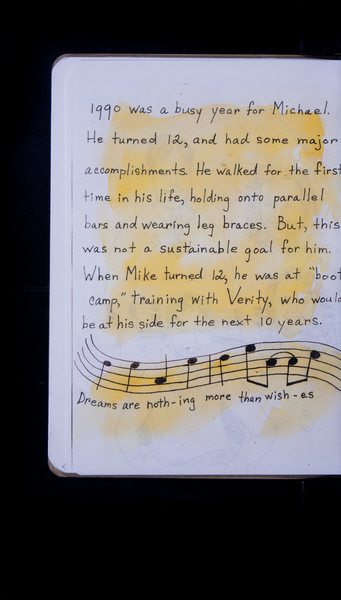 1990 was a busy year for Michael.
He turned 12, and had some major
accomplishments. He walked for the first
time in his life, holding onto parallel
bars and wearing leg braces. But, this
was not a sustainable goal for him.
When Mike turned 12, he was at "boot
camp," training with Verity, who would
be at his side for the next 10 years.
Dreams are noth-ing more than wish-es